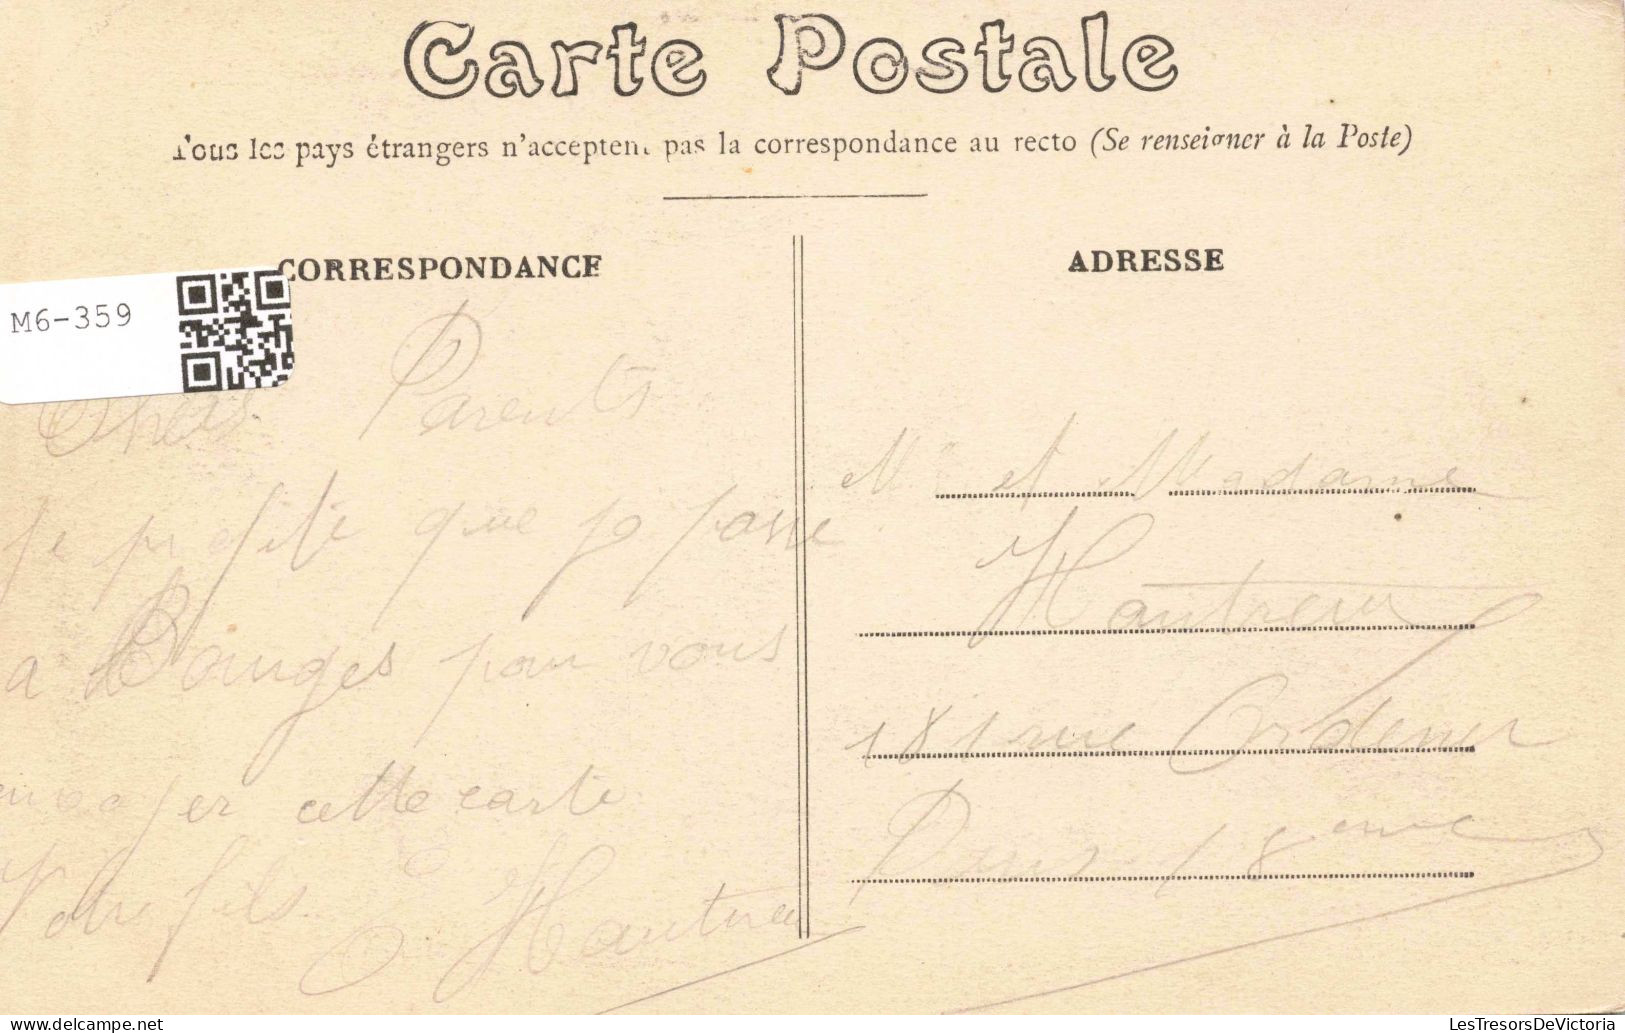 Carte Postale
Tous les pays étrangers n'acceptent pas la correspondance au recto (Se renseigner à la Poste)
CORRESPONDANCE
ADRESSE
M6-359
Chers Parents
je profite que je passe
a Bourges pour vous
envoyer cette carte
Votre fils
Hautreux
Mr et Madame
Hautreux
181 rue Ordener
Paris 18eme
LesTresorsDeVictoria
www.delcampe.net